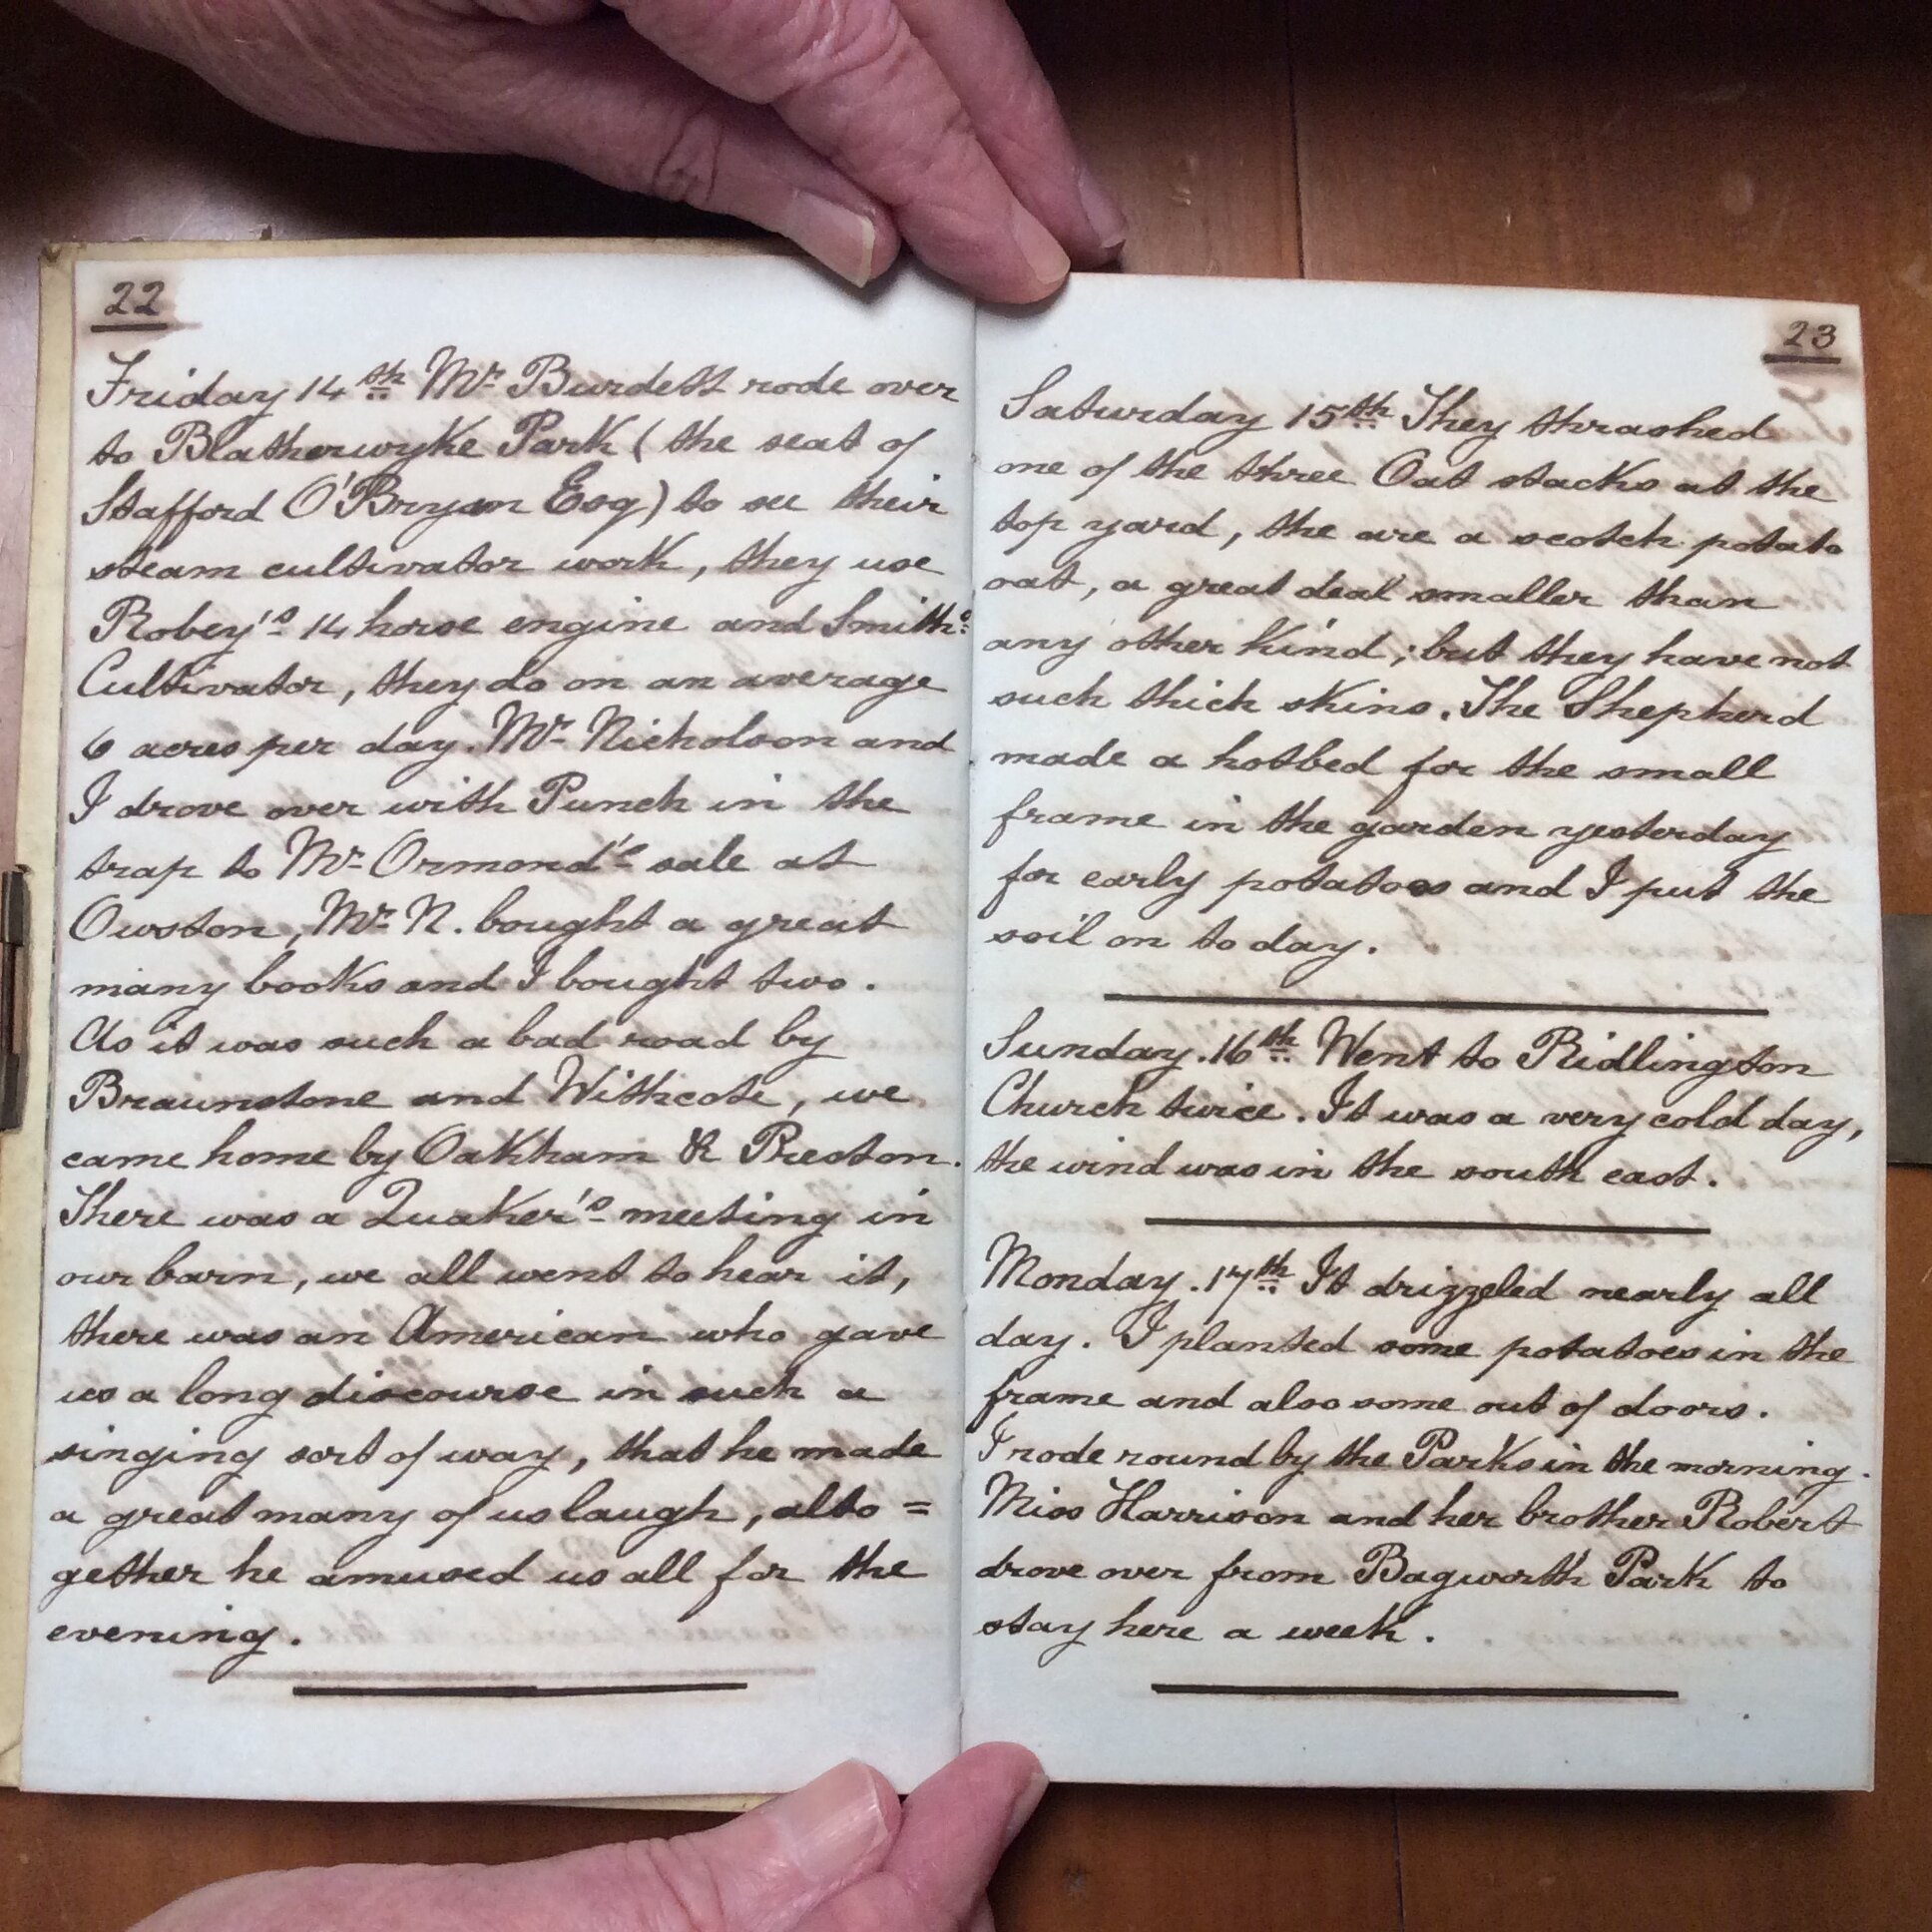 22
Friday 14th Mr Burdett rode over
to Blatherwyke Park (the seat of
Stafford O'Bryan Esq) to see their
steam cultivator work, they use
Robey's 14 horse engine and Smith's
Cultivator, they do on an average
6 acres per day. Mr Nicholson and
I drove over with Punch in the
trap to Mr Ormond's sale at
Owston, Mr N. bought a great
many books and I bought two.
As it was such a bad road by
Braunstone and Withcote, we
came home by Oakham & Preston.
There was a Quaker's meeting in
our barn, we all went to hear it,
there was an American who gave
us a long discourse in such a
singing sort of way, that he made
a great many of us laugh, alto =
gether he amused us all for the
evening.
23
Saturday 15th They thrashed
one of the three Oat stacks at the
top yard, the are a scotch potato
oat, a great deal smaller than
any other kind; but they have not
such thick skins. The Shepherd
made a hotbed for the small
frame in the garden yesterday
for early potatoes and I put the
soil on to day.
Sunday. 16th Went to Ridlington
Church twice. It was a very cold day,
the wind was in the south east.
Monday. 17th It drizzeled nearly all
day. I planted some potatoes in the
frame and also some out of doors.
I rode round by the Parks in the morning.
Miss Harrison and her brother Robert
drove over from Bagworth Park to
stay here a week.